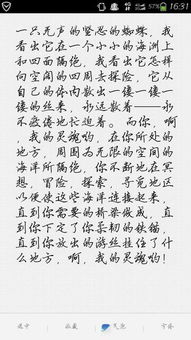 16:31
一只无声的坚忍的蜘蛛，我
看出它在一个小小的海洲上
和四面隔绝，我看出它怎样
向空阔的四周去探险，它从
自己的体内散出一缕一缕一
缕的丝来，永远散着——永
不疲倦地忙迫着。而你，啊
，我的灵魂哟，在你所处的
地方，周围为无限的空间的
海洋所隔绝，你不断地在冥
想，冒险，探索，寻觅地区
以便使这些海洋连接起来，
直到你需要的桥梁做成，直
到你下定了你柔韧的铁锚，
直到你放出的游丝挂住了什
么地方，啊，我的灵魂哟！
收藏
字体